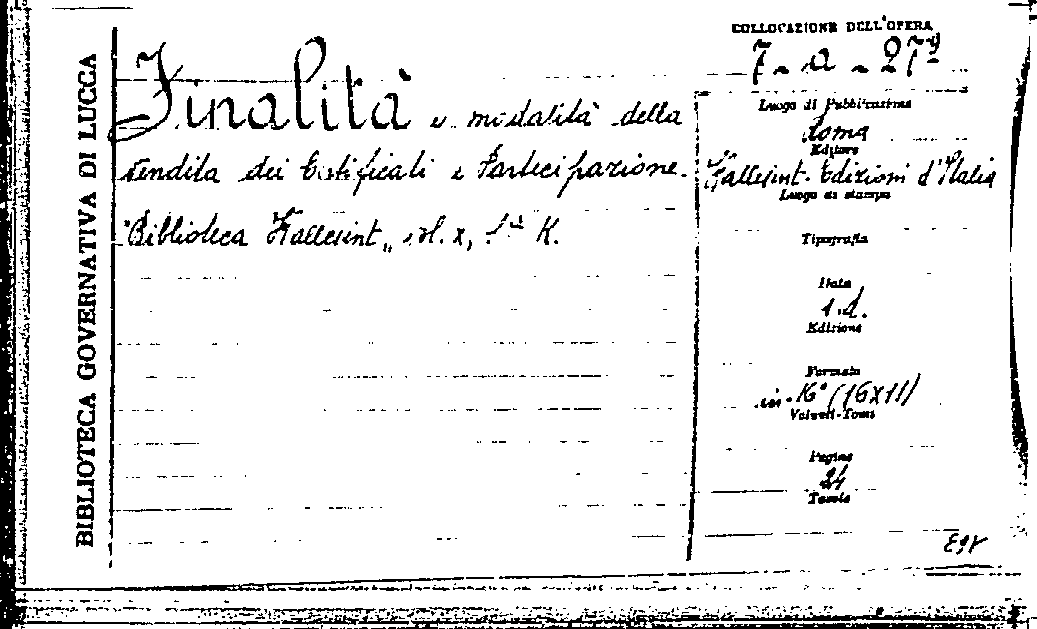 BIBLIOTECA GOVERNATIVA DI LUCCA
Finalità e modalità della
vendita dei Certificati e Partecipazione.
"Biblioteca Hallesint„ vol. x, K.
COLLOCAZIONE DELL'OPERA
7 - a - 27
Luogo di Pubblicazione
Roma
Editore
Hallesint. Edizioni d'Italia
Luogo di stampa
Tipografia
Data
s.d.
Edizione
Formato
in-16° (16x11)
Volumi-Tomi
Pagine
24
Tavole